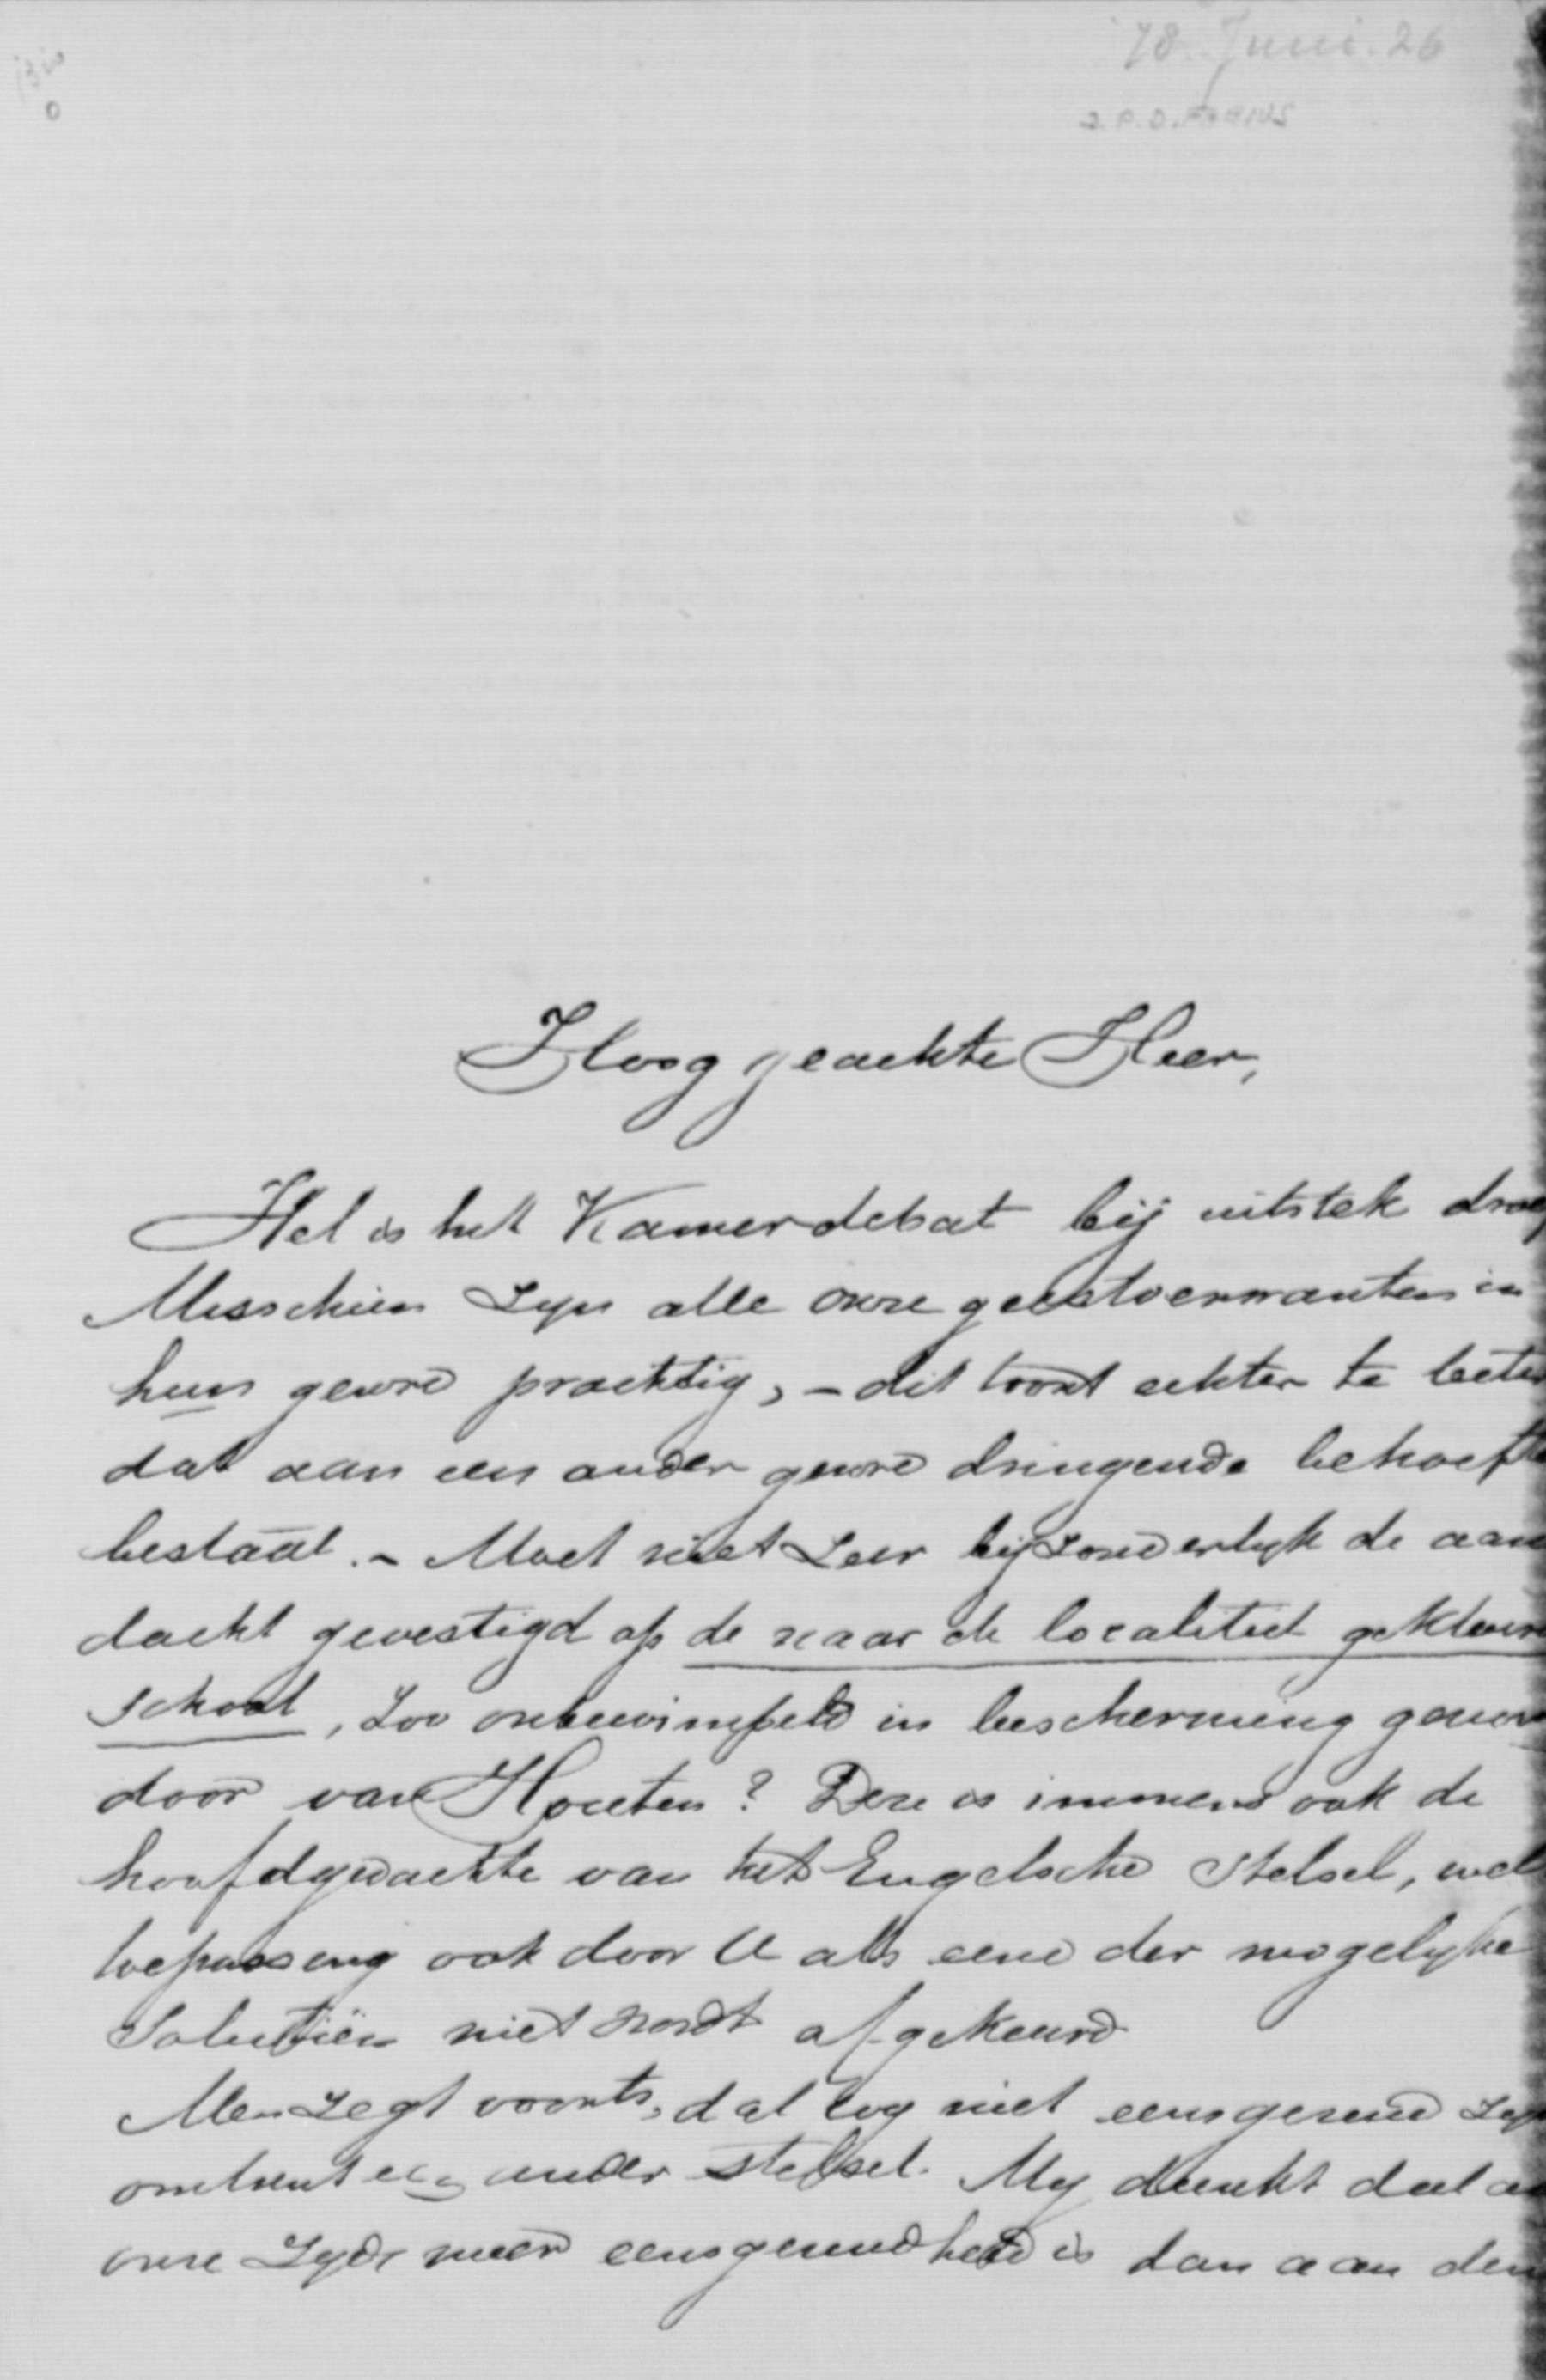 78. Juni. 26
D.P.D. FABIUS
Hooggeachte Heer,
Hel is het Kamerdebat bij uitstek droe
Misschien zijn alle onze geestverwanten in
hun genre prachtig, – dit toont echter te beter
dat aan een ander genre dringende behoefte
bestaat. – Moet niet zeer bijzonderlijk de aan
dacht gevestigd op de naar de localiteit gekleur
school, zoo onbewimpeld in bescherming genom
door van Houten? Deze is immers ook de
hoofdgedachte van het Engelsche Stelsel, wel
toepassing ook door U als eene der mogelijke
Solutiën niet wordt afgekeurd
Men zegt voorts, dat wy niet eensgezind zijn
omtrent een ander stelsel. My dunkt dat aa
onze zyde meer eensgezindheid is dan aan den